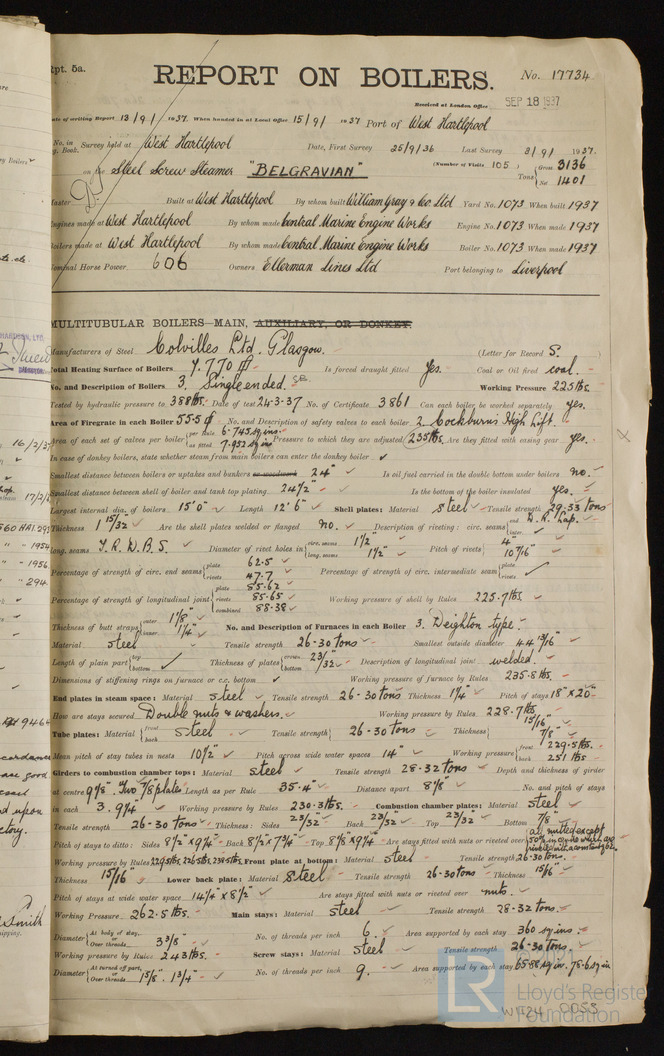 Rpt. 5a.
REPORT ON BOILERS.
No. 17734
Received at London Office SEP 18 1937
Date of writing Report 13/9/1937. When handed in at Local Office 15/9/1937 Port of West Hartlepool
No. in Reg. Book. Survey held at West Hartlepool Date, First Survey 25/9/36 Last Survey 3/9/1937.
on the Steel Screw Steamer "BELGRAVIAN" (Number of Visits 105) Tons Gross 3136 Net 1401
Master Built at West Hartlepool By whom built William Gray & Co Ltd Yard No. 1073 When built 1937
Engines made at West Hartlepool By whom made Central Marine Engine Works Engine No. 1073 When made 1937
Boilers made at West Hartlepool By whom made Central Marine Engine Works Boiler No. 1073 When made 1937
Nominal Horse Power 606 Owners Ellerman Lines Ltd Port belonging to Liverpool
MULTITUBULAR BOILERS—MAIN, AUXILIARY, OR DONKEY.
Manufacturers of Steel Colvilles Ltd. Glasgow. (Letter for Record S.)
Total Heating Surface of Boilers 7,770 Is forced draught fitted yes. Coal or Oil fired coal.
No. and Description of Boilers 3. Single ended. SB Working Pressure 225 lbs.
Tested by hydraulic pressure to 388 lbs. Date of test 24-3-37 No. of Certificate 3861 Can each boiler be worked separately yes.
Area of Firegrate in each Boiler 55.5 No. and Description of safety valves to each boiler 2. Cockburns High Lift.
Area of each set of valves per boiler per Rule 6.745 sq ins as fitted 7.952 sq ins Pressure to which they are adjusted 235 lbs. Are they fitted with easing gear yes.
In case of donkey boilers, state whether steam from main boilers can enter the donkey boiler ✓
Smallest distance between boilers or uptakes and bunkers or woodwork 24" Is oil fuel carried in the double bottom under boilers no.
Smallest distance between shell of boiler and tank top plating 24½" Is the bottom of the boiler insulated yes.
Largest internal dia. of boilers 15' 0" Length 12' 6" Shell plates: Material steel Tensile strength 29-33 tons
Thickness 1 15/32 Are the shell plates welded or flanged no. Description of riveting: circ. seams end D. R. Lap. inter.
long. seams T.R.W.B.S. Diameter of rivet holes in circ. seams 1½" long. seams 1½" Pitch of rivets 4" 10 7/16"
Percentage of strength of circ. end seams plate 62.5 rivets 47.7 Percentage of strength of circ. intermediate seam plate rivets
Percentage of strength of longitudinal joint plate 85.62 rivets 85.65 combined 88.38 Working pressure of shell by Rules 225.7 lbs.
Thickness of butt straps outer 1⅛" inner 1¼" No. and Description of Furnaces in each Boiler 3. Deighton type
Material steel Tensile strength 26-30 tons Smallest outside diameter 44 13/16"
Length of plain part top bottom Thickness of plates crown bottom 23/32" Description of longitudinal joint welded.
Dimensions of stiffening rings on furnace or c.c. bottom ✓ Working pressure of furnace by Rules 235.8 lbs.
End plates in steam space: Material steel Tensile strength 26-30 tons Thickness 1¼" Pitch of stays 18" x 20"
How are stays secured Double nuts & washers. Working pressure by Rules 228.7 lbs.
Tube plates: Material front back steel Tensile strength 26-30 tons Thickness 15/16" 7/8"
Mean pitch of stay tubes in nests 10½" Pitch across wide water spaces 14" Working pressure front 229.5 lbs. back 251 lbs
Girders to combustion chamber tops: Material steel Tensile strength 28-32 tons Depth and thickness of girder
at centre 9⅛" Two ⅞ plates Length as per Rule 35.4" Distance apart 8⅛" No. and pitch of stays
in each 3. 9¼" Working pressure by Rules 230.3 lbs. Combustion chamber plates: Material steel
Tensile strength 26-30 tons Thickness: Sides 23/32" Back 23/32" Top 23/32" Bottom 7/8"
Pitch of stays to ditto: Sides 8½" x 9¼" Back 8½" x 7¾" Top 8⅛" x 9¼" Are stays fitted with nuts or riveted over all nutted except
Working pressure by Rules Front plate at bottom: Material steel Tensile strength 26-30 tons.
Thickness 15/16" Lower back plate: Material steel Tensile strength 26-30 tons Thickness 15/16"
Pitch of stays at wide water space 14¼" x 8½" Are stays fitted with nuts or riveted over nuts.
Working Pressure 262.5 lbs. Main stays: Material steel Tensile strength 28-32 tons.
Diameter At body of stay, or Over threads 3⅜" No. of threads per inch 6. Area supported by each stay 360 sq ins.
Working pressure by Rules 243 lbs. Screw stays: Material steel Tensile strength 26-30 tons.
Diameter At turned off part, or Over threads 1⅝". 1¾" No. of threads per inch 9. Area supported by each stay 65.88 sq in. 78.6 sq in
LR Lloyd's Register Foundation
W424 0053